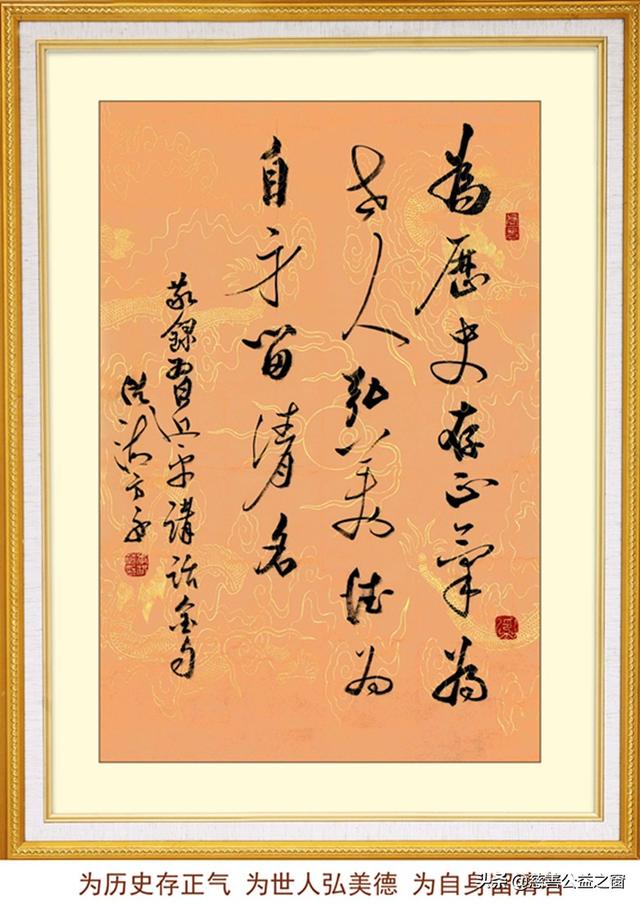 為歷史存正氣為
世人弘美德为
自身留清名
敬録習近平講話金句
为历史存正气 为世人弘美德 为自身留清名
头条@慈善公益之窗